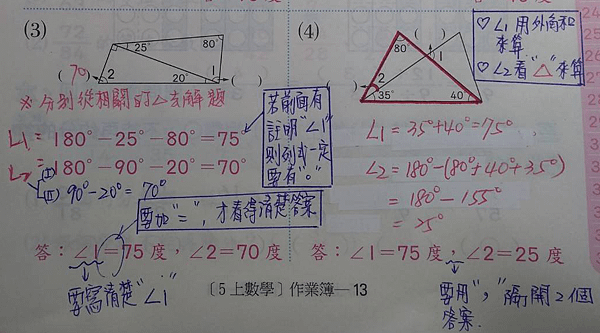 (3)
25°
80°
(70)
2
20°
1
( )
※分別從相關的△去解題
∠1=180°-25°-80°=75°
∠2=180°-90°-20°=70°
90°-20°=70°
若前面有
註明"∠1"
則列式一定
要有"°"
要加"=",才看得清楚答案
答:∠1=75度,∠2=70度
要寫清楚"∠1"
(4)
80°
1
( )
( )
2
35°
40°
♡∠1用外角和
來算
♡∠2看"△"來算
∠1=35°+40°=75°
∠2=180°-(80°+40°+35°)
=180°-155°
=25°
答:∠1=75度,∠2=25度
要用","隔開2個
答案.
〔5上數學〕作業簿—13